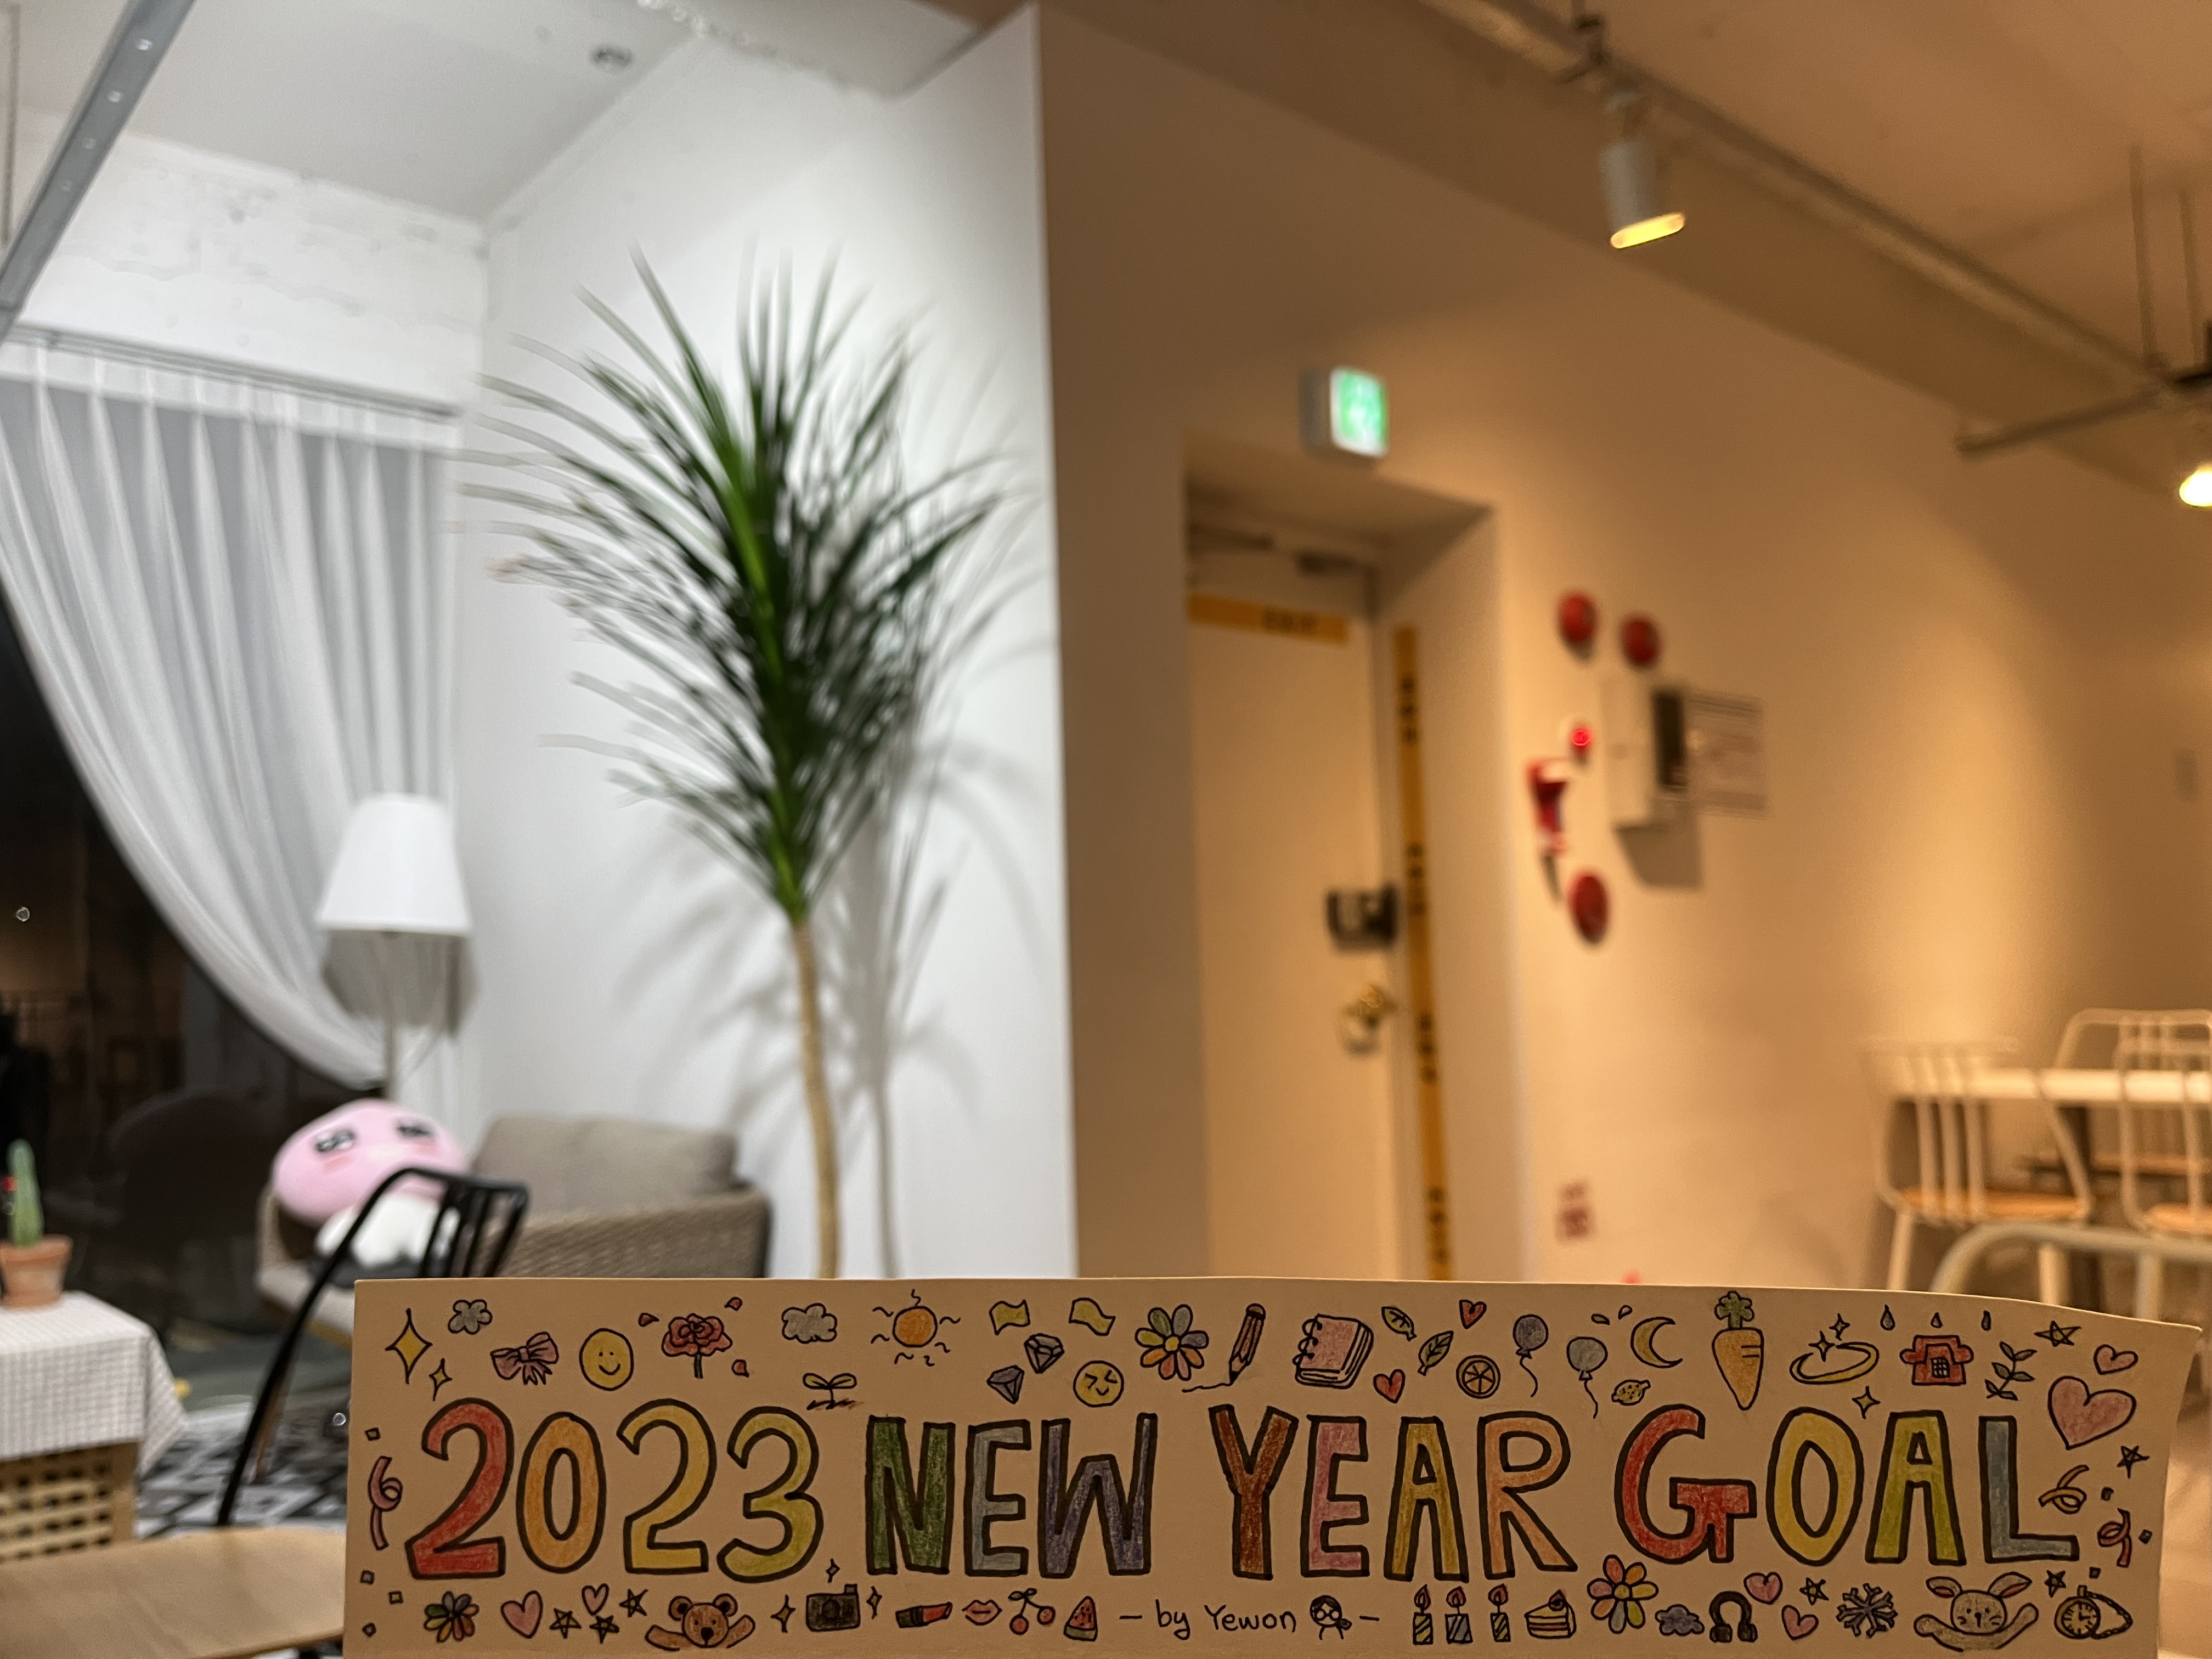 2023 NEW YEAR GOAL
- by Yewon -